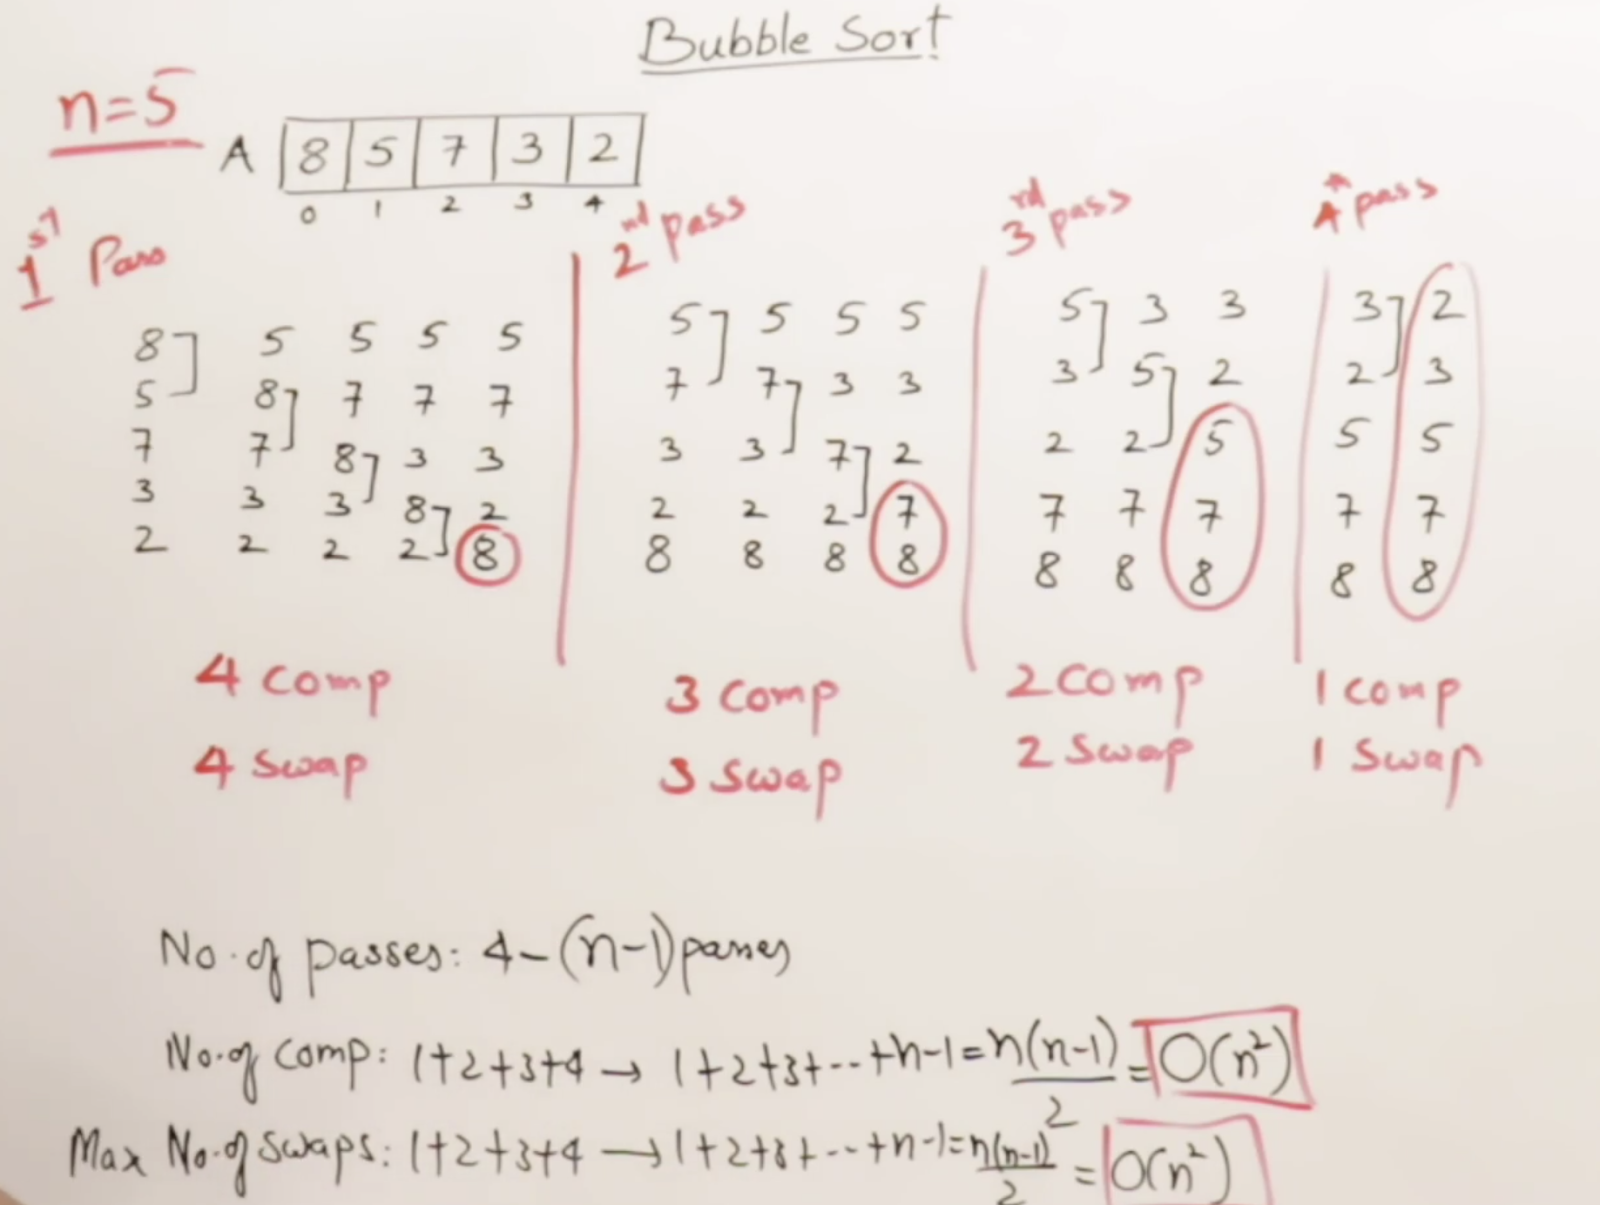 Bubble Sort
n=5
A 8 5 7 3 2
0 1 2 3 4
1st Pass
8 5 5 5 5
5 8 7 7 7
7 7 8 3 3
3 3 3 8 2
2 2 2 2 8
4 Comp
4 Swap
2nd pass
5 5 5 5
7 7 3 3
3 3 7 2
2 2 2 7
8 8 8 8
3 Comp
3 Swap
3rd pass
5 3 3
3 5 2
2 2 5
7 7 7
8 8 8
2 Comp
2 Swap
4th pass
3 2
2 3
5 5
7 7
8 8
1 comp
1 Swap
No. of passes: 4 – (n-1) passes
No. of Comp: 1+2+3+4 → 1+2+3+...+n-1 = n(n-1)/2 = O(n²)
Max No. of Swaps: 1+2+3+4 → 1+2+3+...+n-1 = n(n-1)/2 = O(n²)